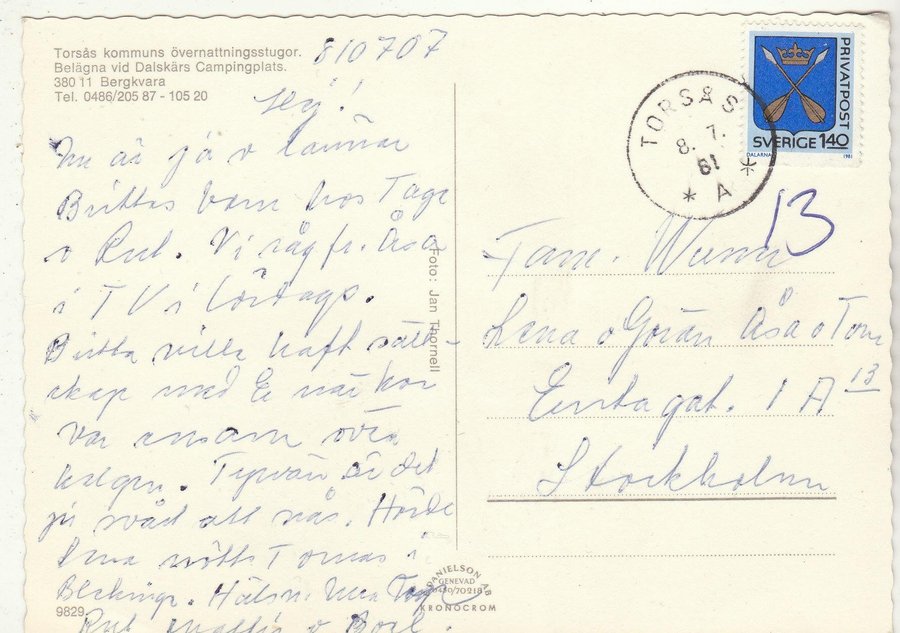 Torsås kommuns övernattningsstugor.
Belägna vid Dalskärs Campingplats.
380 11 Bergkvara
Tel. 0486/205 87 - 105 20
810707
Hej!
Nu är
Brittas barn hos Tage
o Rut. Vi såg fr. Åsa
i TV i lördags.
Britta ville haft säll-
skap med E när hon
var ensam över
helgen. Tyvärr är det
ju svårt att nås. Hörde
Lena mötts Tomas i
Blekinge. Hälsn.
Rut
9829
Foto: Jan Thornell
DANIELSON AB
GENEVAD
0430/70218
KRONOCROM
TORSÅS
8. 7.
81
* A *
PRIVATPOST
SVERIGE 140
DALARNA
1981
13
Fam.
Lena o Göran Åsa o Tom
gat. 1 A 13
Stockholm